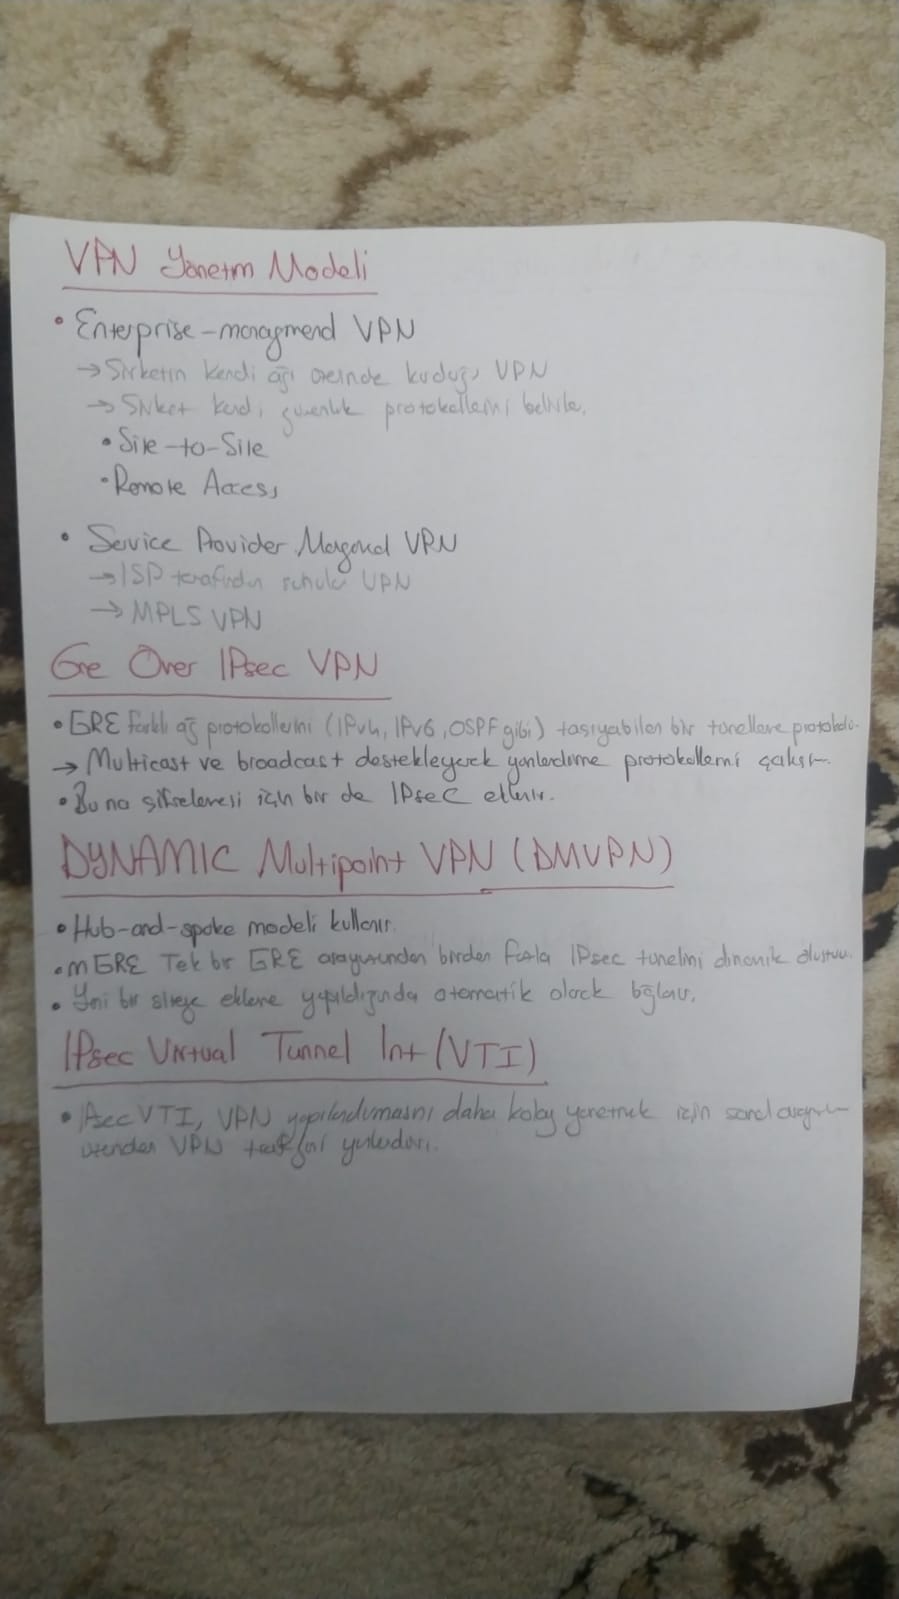 VPN Yönetm Modeli
• Enterprise-managmend VPN
→ Şirketin kendi ağı üzerinde kurduğu VPN
→ Şirket kendi güvenlik protokollerini belirler.
• Site-to-Site
• Remote Access
• Service Provider Managed VPN
→ ISP tarafından sunulan VPN
→ MPLS VPN
Gre Over IPsec VPN
• GRE farklı ağ protokollerini (IPv4, IPv6, OSPF gibi) taşıyabilen bir tünelleme protokolü.
→ Multicast ve broadcast destekleyerek yönlendirme protokollerini çalıştır.
• Buna şifrelemesi için bir de IPsec eklenir.
DYNAMIC Multipoint VPN (DMVPN)
• Hub-and-spoke modeli kullanır.
• mGRE Tek bir GRE arayüzünden birden fazla IPsec tünelini dinamik oluşturur.
• Yeni bir siteye ekleme yapıldığında otomatik olarak bağlanır.
IPsec Virtual Tunnel Int (VTI)
• IPsec VTI, VPN yapılandırmasını daha kolay yönetmek için sanal arayüzler
üzerinden VPN trafiğini yönlendirir.